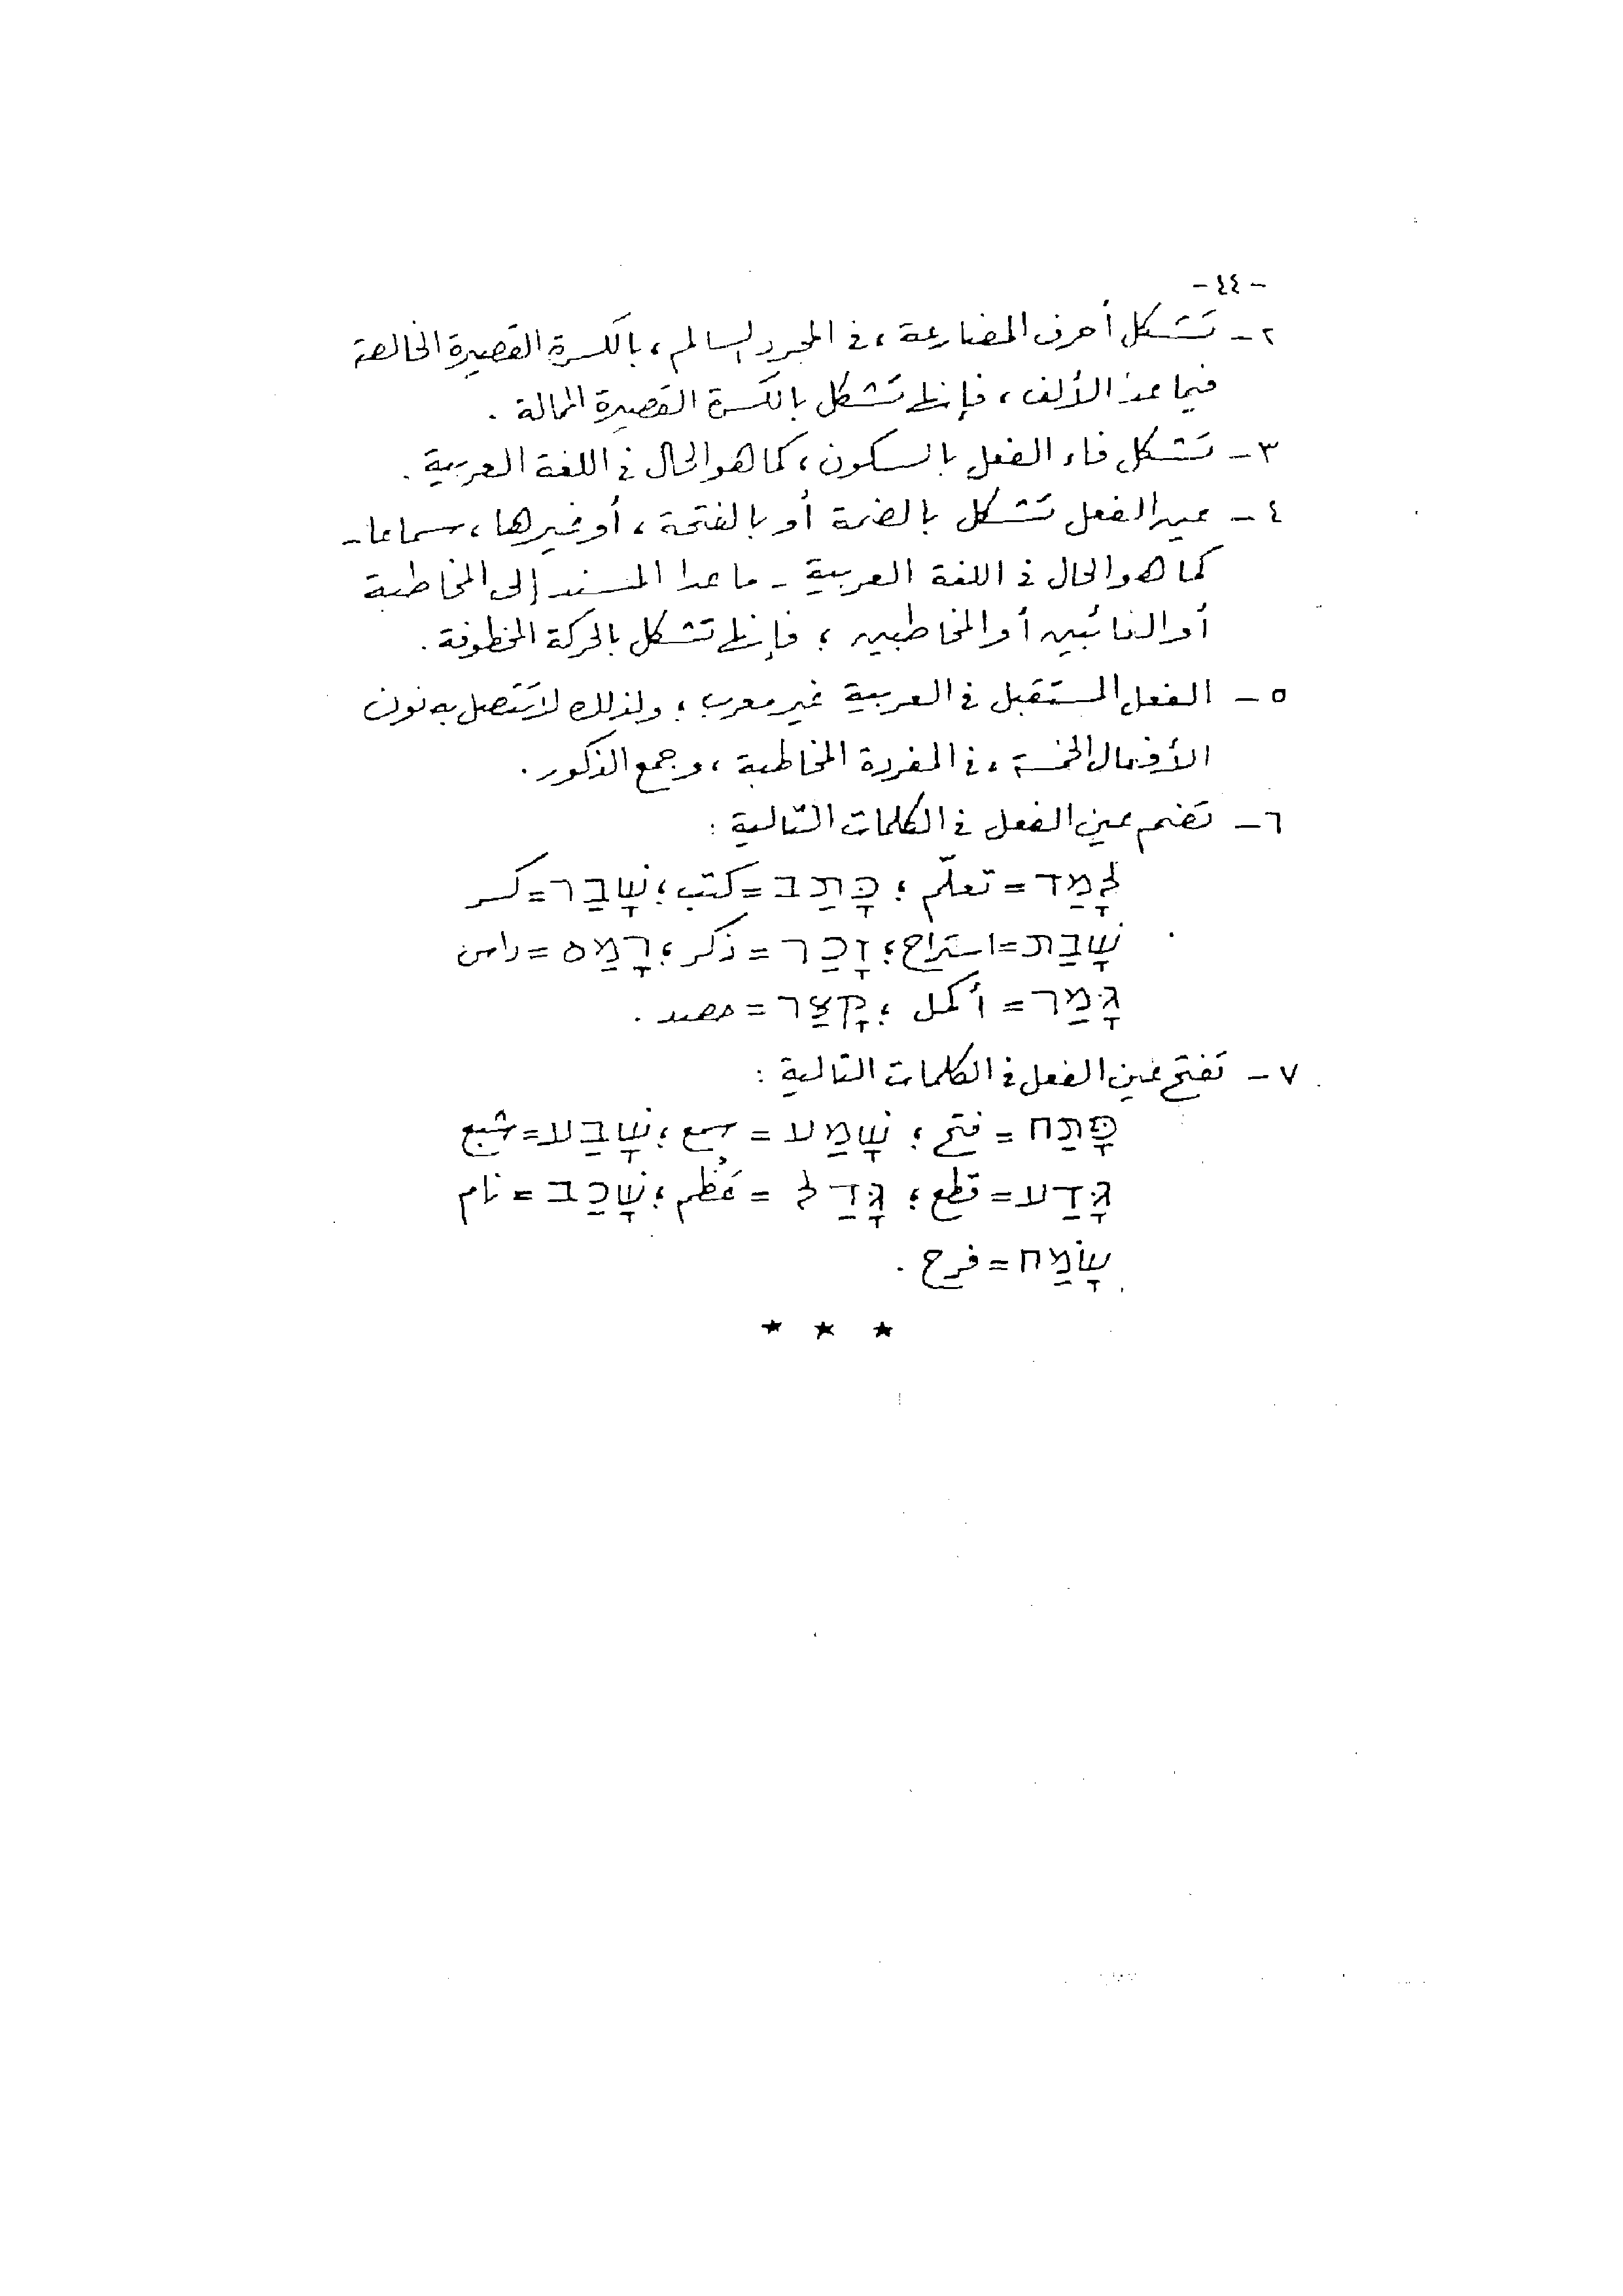 -٤٤-
٢- تَشكل أحرف المضارعة، في المجرد السالم، بالكسرة القصيرة الخالصة
فيما عدا الألف، فإنها تشكل بالكسرة القصيرة الممالة .
٣- تشكل فاء الفعل بالسكون، كما هو الحال في اللغة العربية .
٤- عين الفعل تشكل بالضمة أو بالفتحة، أو غيرها، سماعا-
كما هو الحال في اللغة العربية - ما عدا المسند إلى المخاطبة
أو الغائبين أو المخاطبين ؛ فإنها تشكل بالحركة المخطوفة .
٥- الفعل المستقبل في العبرية غير معرب ؛ ولذلك لا تتصل به نون
الأفعال الخمسة ، في المفردة المخاطبة ، وجمع الذكور .
٦- تضم عين الفعل في الكلمات التالية :
לָמַד = تعلّم ؛ כָּתַב = كتب ؛ שָׁבַר = كسر
שָׁבַת = استراح ؛ זָכַר = ذكر ؛ רָמַס = داس
גָּמַר = أكمل ؛ קָצַר = حصد .
٧- تفتح عين الفعل في الكلمات التالية :
פָּתַח = فتح ؛ שָׁמַע = سمع ؛ שָׂבַע = شبع
גָּדַע = قطع ؛ גָּדַל = عَظُم ؛ שָׁכַב = نام
שָׂמַח = فرح .
★ ★ ★